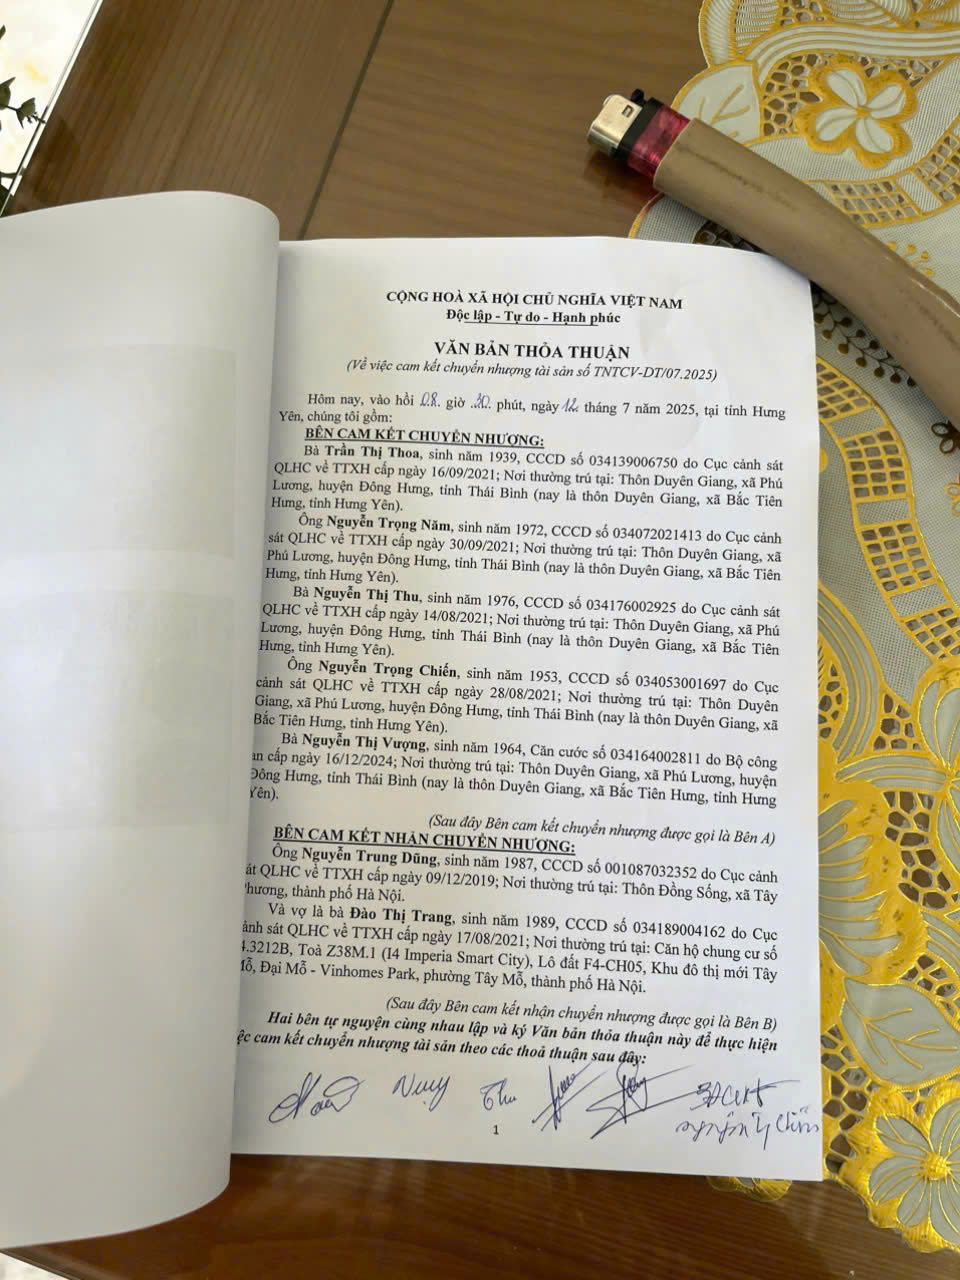 CỘNG HOÀ XÃ HỘI CHỦ NGHĨA VIỆT NAM
Độc lập - Tự do - Hạnh phúc
VĂN BẢN THỎA THUẬN
(Về việc cam kết chuyển nhượng tài sản số TNTCV-DT/07.2025)
Hôm nay, vào hồi 08 giờ 30 phút, ngày 12 tháng 7 năm 2025, tại tỉnh Hưng
Yên, chúng tôi gồm:
BÊN CAM KẾT CHUYỂN NHƯỢNG:
Bà Trần Thị Thoa, sinh năm 1939, CCCD số 034139006750 do Cục cảnh sát
QLHC về TTXH cấp ngày 16/09/2021; Nơi thường trú tại: Thôn Duyên Giang, xã Phú
Lương, huyện Đông Hưng, tỉnh Thái Bình (nay là thôn Duyên Giang, xã Bắc Tiên
Hưng, tỉnh Hưng Yên).
Ông Nguyễn Trọng Năm, sinh năm 1972, CCCD số 034072021413 do Cục cảnh
sát QLHC về TTXH cấp ngày 30/09/2021; Nơi thường trú tại: Thôn Duyên Giang, xã
Phú Lương, huyện Đông Hưng, tỉnh Thái Bình (nay là thôn Duyên Giang, xã Bắc Tiên
Hưng, tỉnh Hưng Yên).
Bà Nguyễn Thị Thu, sinh năm 1976, CCCD số 034176002925 do Cục cảnh sát
QLHC về TTXH cấp ngày 14/08/2021; Nơi thường trú tại: Thôn Duyên Giang, xã Phú
Lương, huyện Đông Hưng, tỉnh Thái Bình (nay là thôn Duyên Giang, xã Bắc Tiên
Hưng, tỉnh Hưng Yên).
Ông Nguyễn Trọng Chiến, sinh năm 1953, CCCD số 034053001697 do Cục
cảnh sát QLHC về TTXH cấp ngày 28/08/2021; Nơi thường trú tại: Thôn Duyên
Giang, xã Phú Lương, huyện Đông Hưng, tỉnh Thái Bình (nay là thôn Duyên Giang, xã
Bắc Tiên Hưng, tỉnh Hưng Yên).
Bà Nguyễn Thị Vượng, sinh năm 1964, Căn cước số 034164002811 do Bộ công
an cấp ngày 16/12/2024; Nơi thường trú tại: Thôn Duyên Giang, xã Phú Lương, huyện
Đông Hưng, tỉnh Thái Bình (nay là thôn Duyên Giang, xã Bắc Tiên Hưng, tỉnh Hưng
Yên).
(Sau đây Bên cam kết chuyển nhượng được gọi là Bên A)
BÊN CAM KẾT NHẬN CHUYỂN NHƯỢNG:
Ông Nguyễn Trung Dũng, sinh năm 1987, CCCD số 001087032352 do Cục cảnh
át QLHC về TTXH cấp ngày 09/12/2019; Nơi thường trú tại: Thôn Đồng Sống, xã Tây
hương, thành phố Hà Nội.
Và vợ là bà Đào Thị Trang, sinh năm 1989, CCCD số 034189004162 do Cục
ảnh sát QLHC về TTXH cấp ngày 17/08/2021; Nơi thường trú tại: Căn hộ chung cư số
4.3212B, Toà Z38M.1 (I4 Imperia Smart City), Lô đất F4-CH05, Khu đô thị mới Tây
Mỗ, Đại Mỗ - Vinhomes Park, phường Tây Mỗ, thành phố Hà Nội.
(Sau đây Bên cam kết nhận chuyển nhượng được gọi là Bên B)
Hai bên tự nguyện cùng nhau lập và ký Văn bản thỏa thuận này để thực hiện
ệc cam kết chuyển nhượng tài sản theo các thoả thuận sau đây:
Thu
1